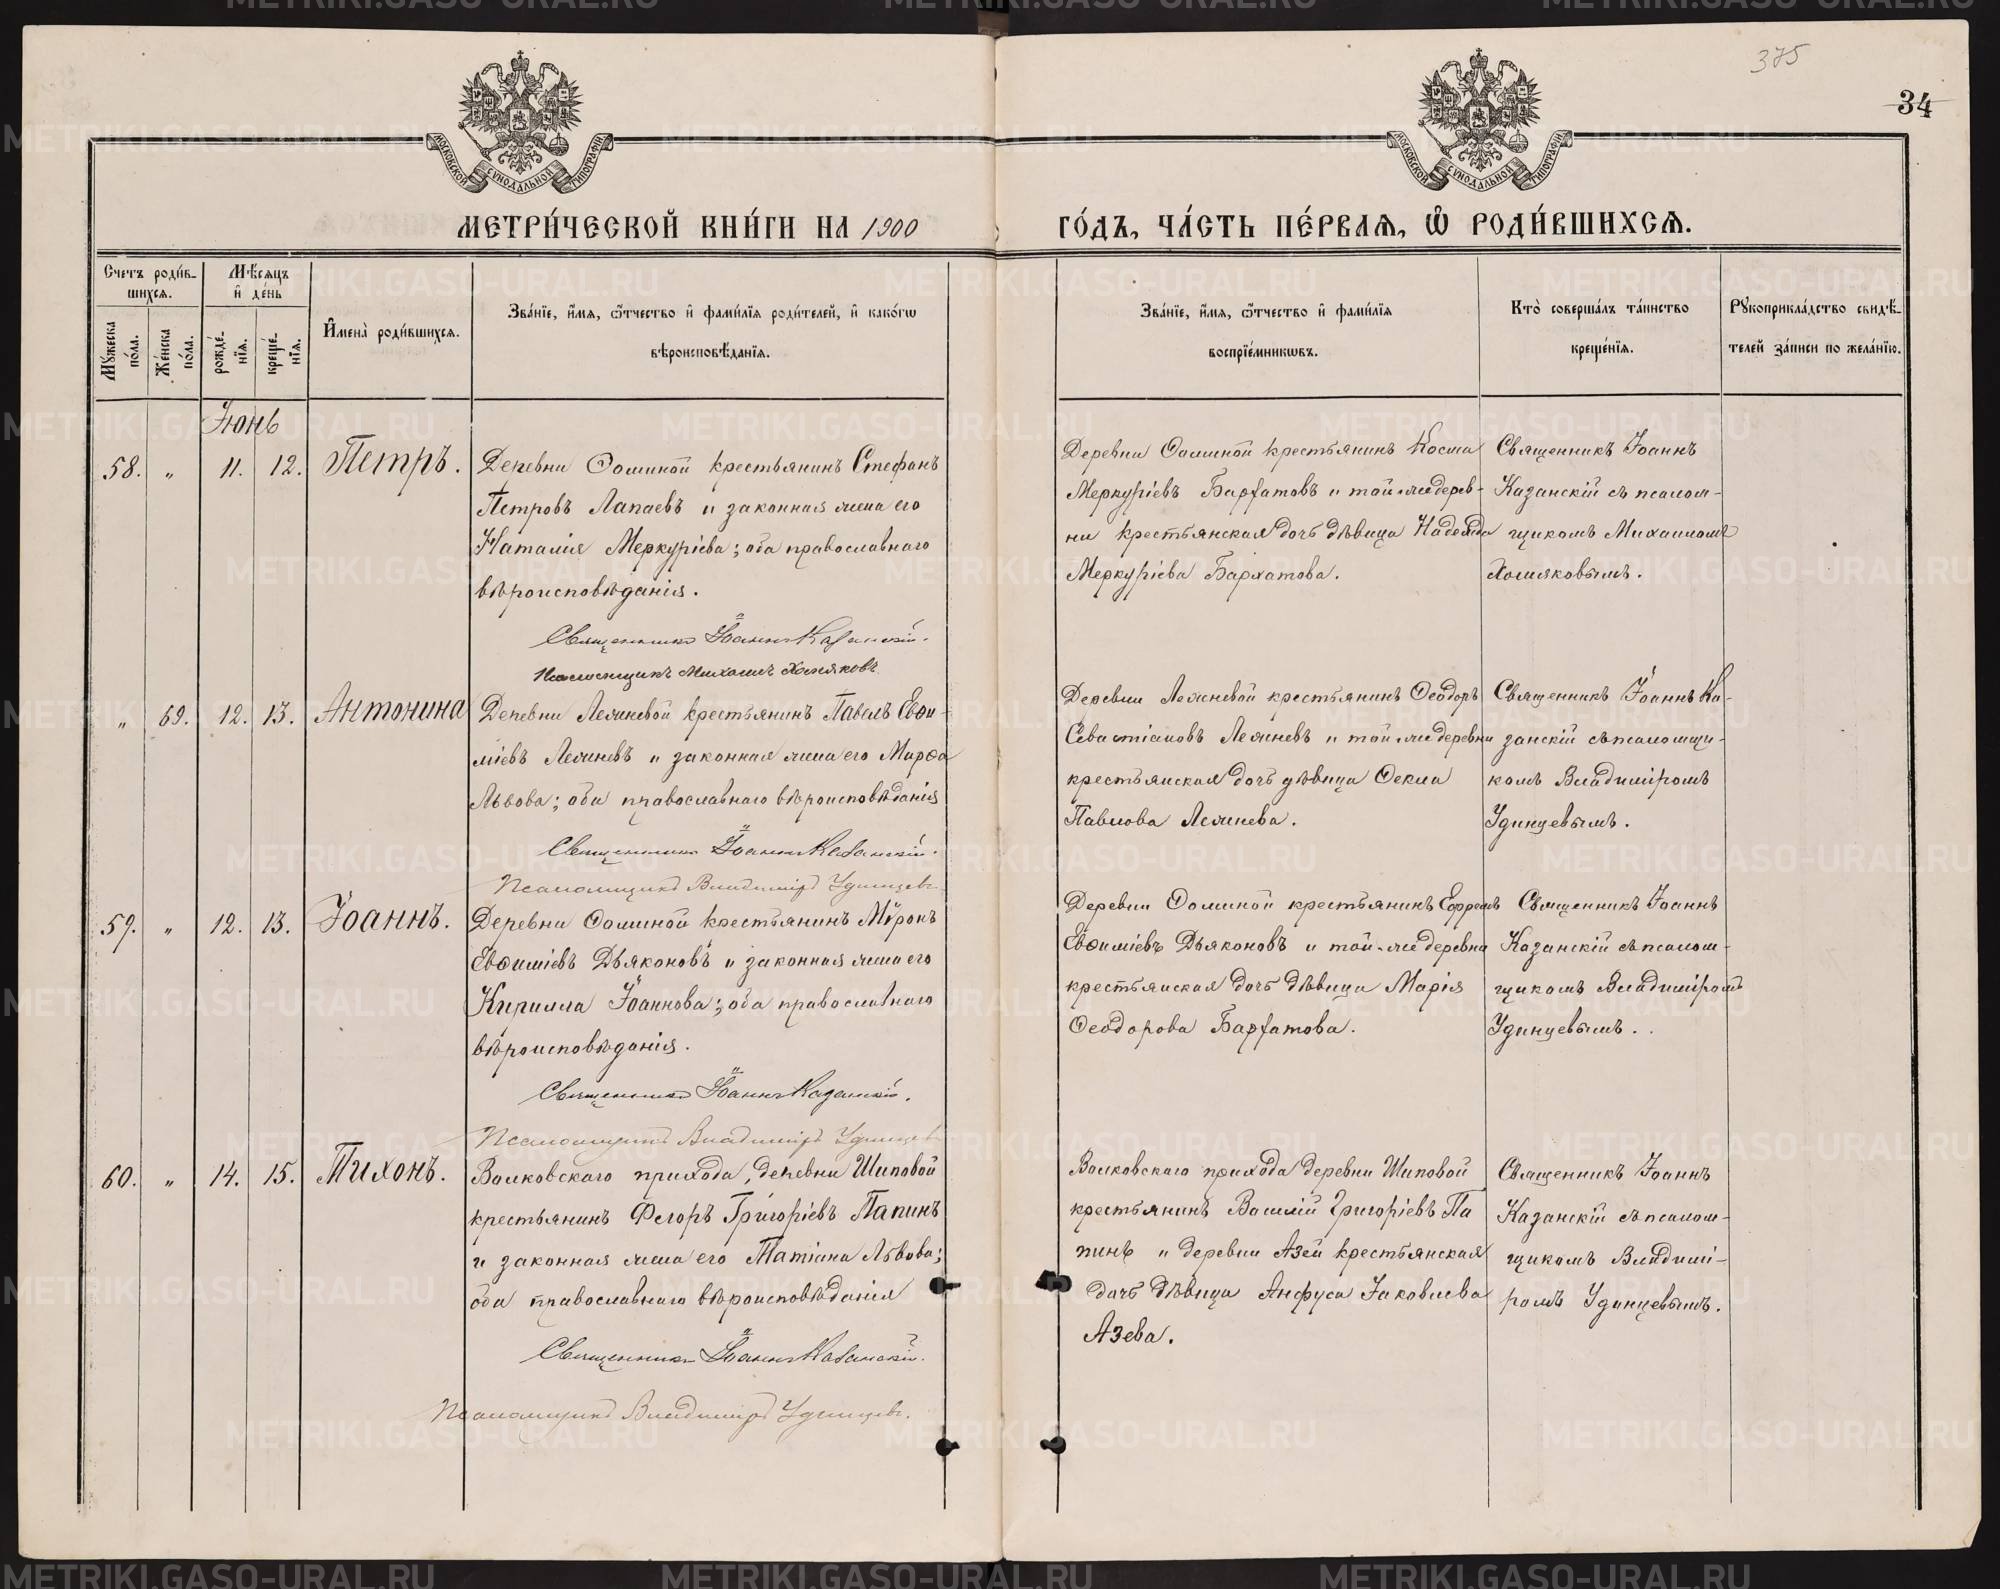 375
34
МОСКОВСКОЙ СУНОДАЛЬНОЙ ТИПОГРАФІИ
МОСКОВСКОЙ СУНОДАЛЬНОЙ ТИПОГРАФІИ
МЕТРИ́ЧЕСКОЙ КНИ́ГИ НА 1900
ГО́ДЪ, ЧА́СТЬ ПЕ́РВАѦ, Ѽ РОДИ́ВШИХСѦ.
Счетъ роди́в-
шихсѧ.
Мѣ́сѧцъ
и҆ де́нь
Мꙋ́жеска
по́ла.
Же́нска
по́ла.
рожде́-
нїѧ.
креще́-
нїѧ.
И҆мена̀ роди́вшихсѧ.
Зва́нїе, и҆́мѧ, ѻ҆́тчество и҆ фами́лїѧ роди́телей, и҆ како́гѡ
вѣроисповѣ́данїѧ.
Зва́нїе, и҆́мѧ, ѻ҆́тчество и҆ фами́лїѧ
воспрїе́мникѡвъ.
Кто̀ соверша́лъ та́инство
креще́нїѧ.
Рꙋкоприкла́дство свидѣ́-
телей за́писи по жела́нїю.
Іюнь
58. „ 11. 12. Петръ.
Деревни Ѳоминой крестьянинъ Стефанъ
Петровъ Лапаевъ и законная жена его
Наталія Меркуріева; оба православнаго
вѣроисповѣданія.
Священникъ Іоаннъ Казанскій.
Псаломщикъ Михаилъ Хомяковъ
Деревни Ѳоминой крестьянинъ Косма
Меркуріевъ Бархатовъ и той-же дерев-
ни крестьянская дочь дѣвица Надежда
Меркуріева Бархатова.
Священникъ Іоаннъ
Казанскій съ псалом-
щикомъ Михаиломъ
Хомяковымъ.
„ 69. 12. 13. Антонина
Деревни Лежневой крестьянинъ Павелъ Евѳи-
міевъ Лежневъ и законная жена его Марѳа
Львова; оба православнаго вѣроисповѣданія
Священникъ Іоаннъ Казанскій.
Псаломщикъ Владиміръ Удинцевъ.
Деревни Лежневой крестьянинъ Ѳеодоръ
Севастіановъ Лежневъ и той-же деревни
крестьянская дочь дѣвица Ѳекла
Павлова Лежнева.
Священникъ Іоаннъ Ка-
занскій съ псаломщи-
комъ Владиміромъ
Удинцевымъ.
59. „ 12. 13. Іоаннъ.
Деревни Ѳоминой крестьянинъ Мѵронъ
Евѳиміевъ Дьяконовъ и законная жена его
Кирилла Іоаннова; оба православнаго
вѣроисповѣданія.
Священникъ Іоаннъ Казанскій.
Псаломщикъ Владиміръ Удинцевъ
Деревни Ѳоминой крестьянинъ Ефремъ
Евѳиміевъ Дьяконовъ и той-же деревни
крестьянская дочь дѣвица Марія
Ѳеодорова Бархатова.
Священникъ Іоаннъ
Казанскій съ псалом-
щикомъ Владиміромъ
Удинцевымъ.
60. „ 14. 15. Тихонъ.
Волковскаго прихода, деревни Шиповой
крестьянинъ Ѳедоръ Григоріевъ Папинъ
и законная жена его Татіана Львова;
оба православнаго вѣроисповѣданія
Священникъ Іоаннъ Казанскій.
Псаломщикъ Владиміръ Удинцевъ.
Волковскаго прихода деревни Шиповой
крестьянинъ Василій Григоріевъ Па
пинъ и деревни Азей крестьянская
дочь дѣвица Анфуса Іаковлева
Азева.
Священникъ Іоаннъ
Казанскій съ псалом-
щикомъ Владимі-
ромъ Удинцевымъ.
METRIKI.GASO-URAL.RU